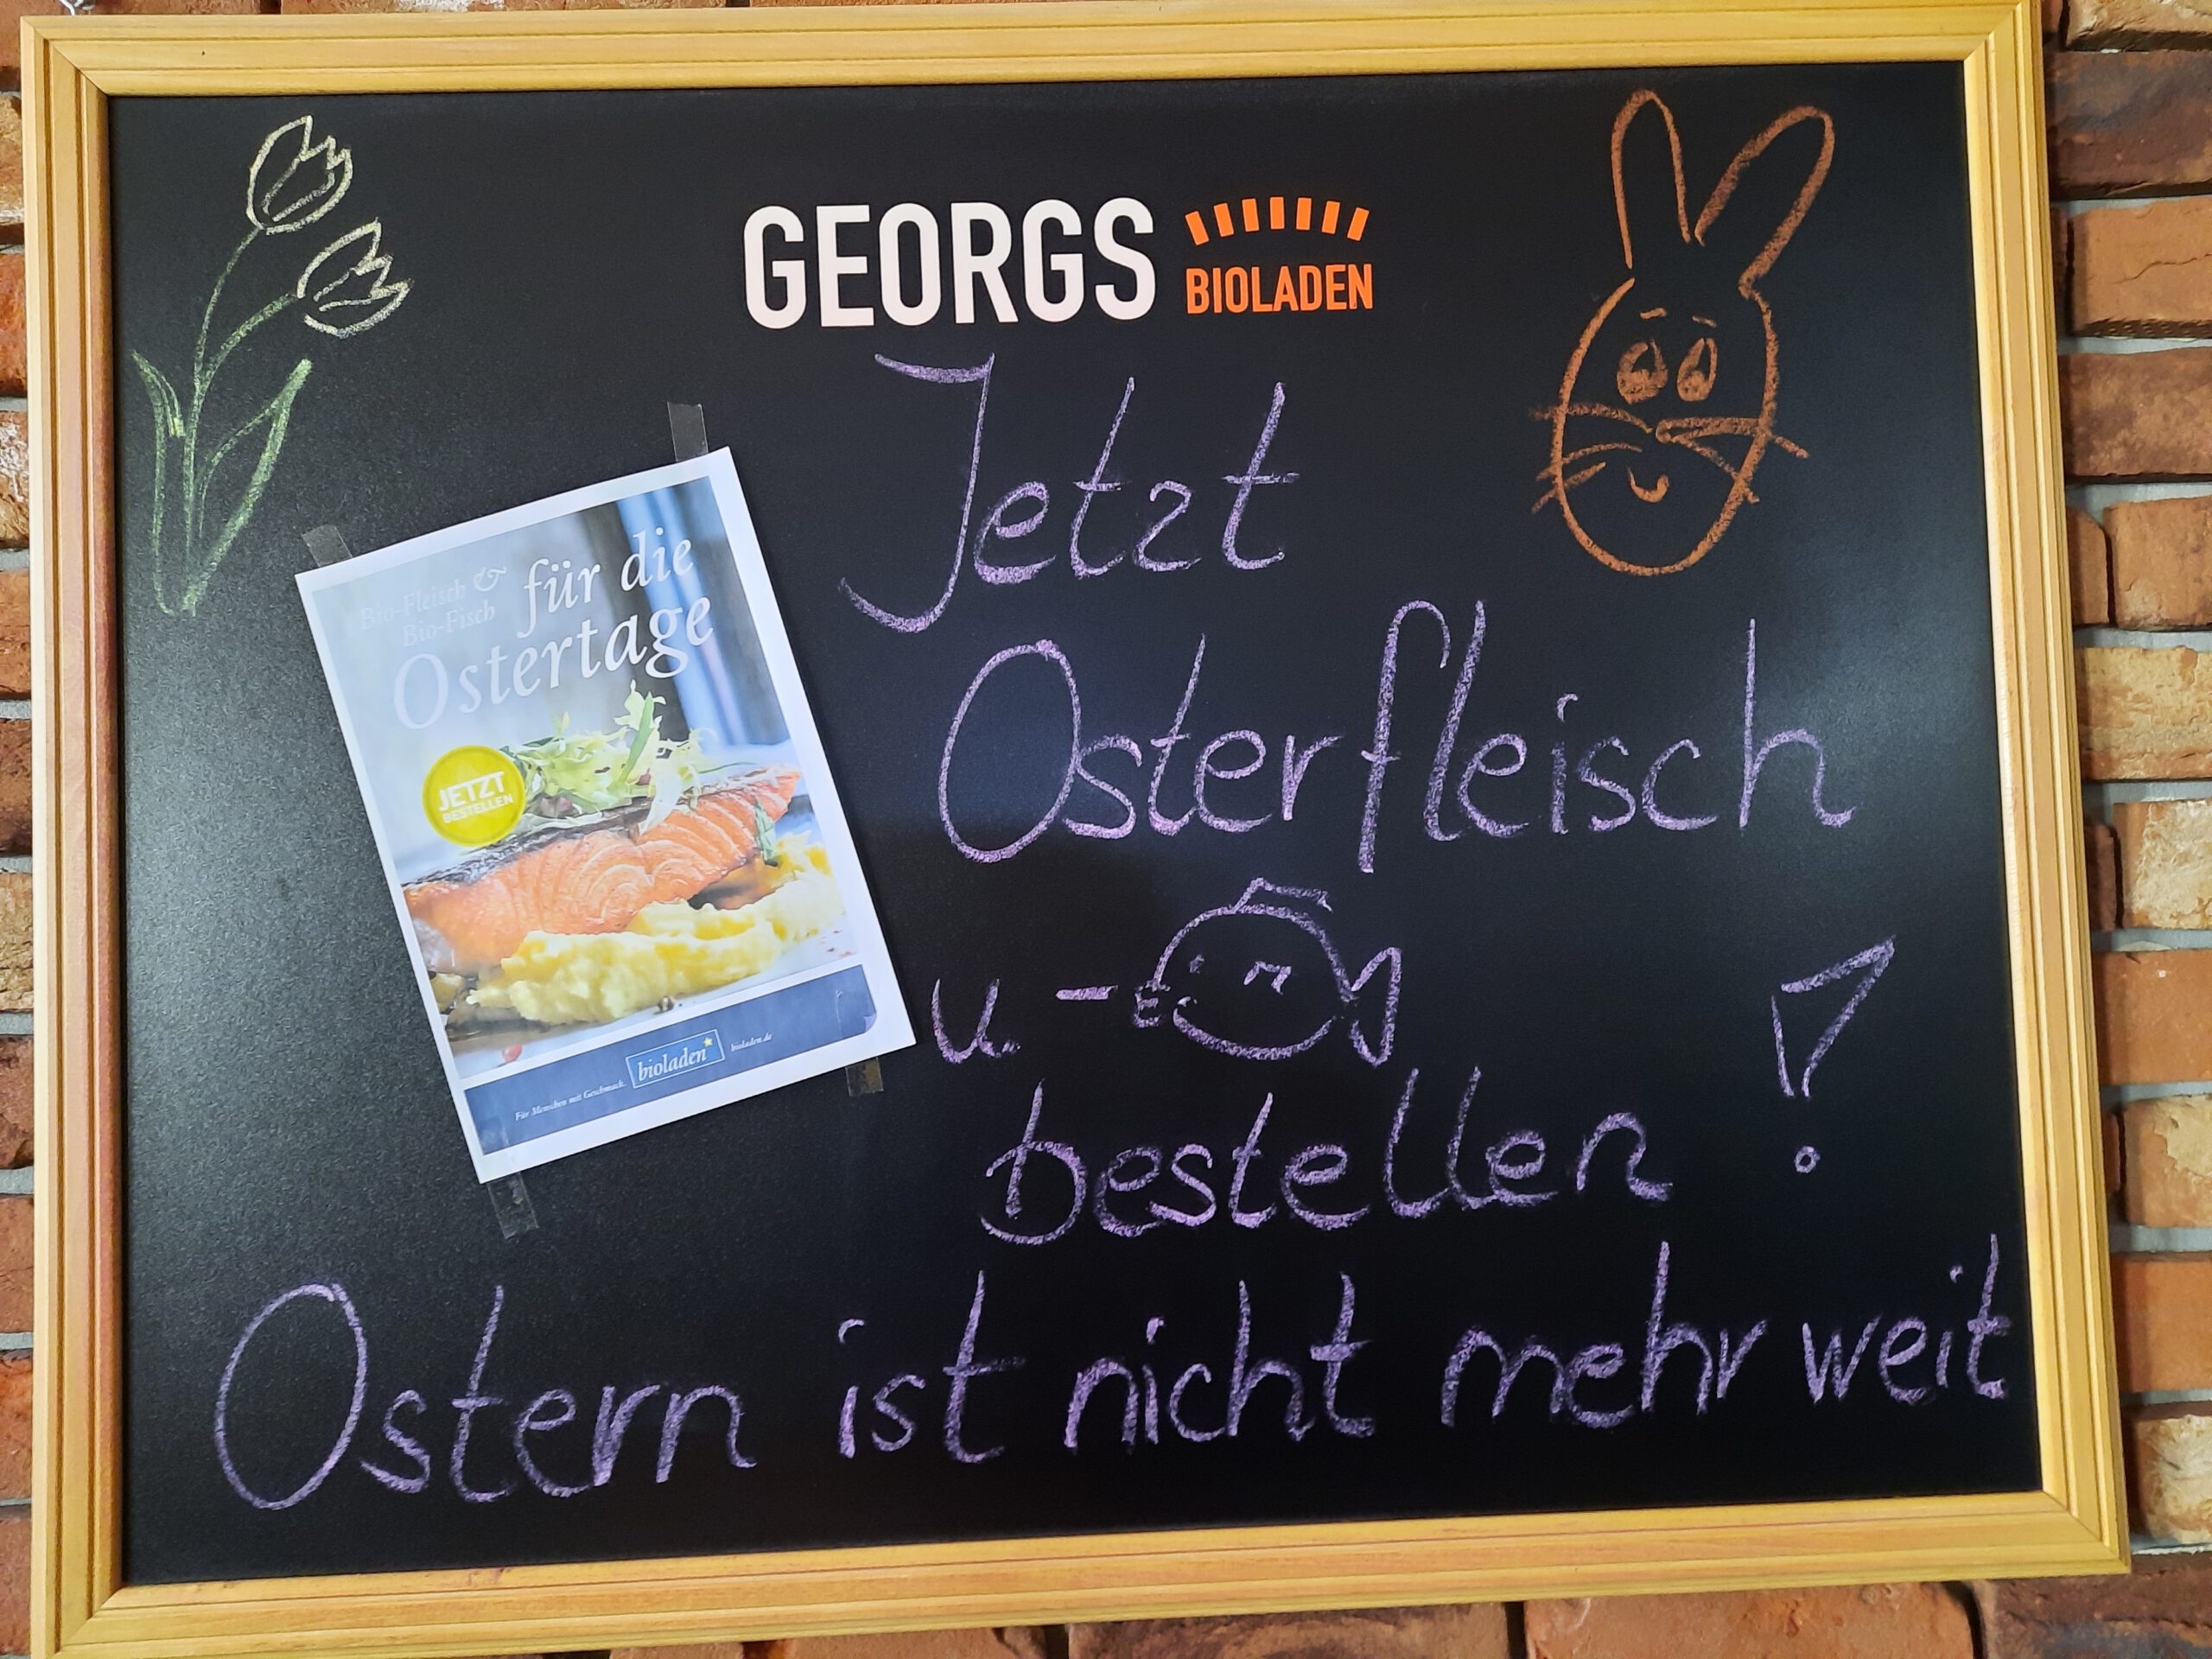 GEORGS BIOLADEN
Jetzt
Osterfleisch
u. -
bestellen !
Ostern ist nicht mehr weit
Bio-Fleisch &
Bio-Fisch
für die
Ostertage
JETZT
BESTELLEN
Für Menschen mit Geschmack.
bioladen
bioladen.de